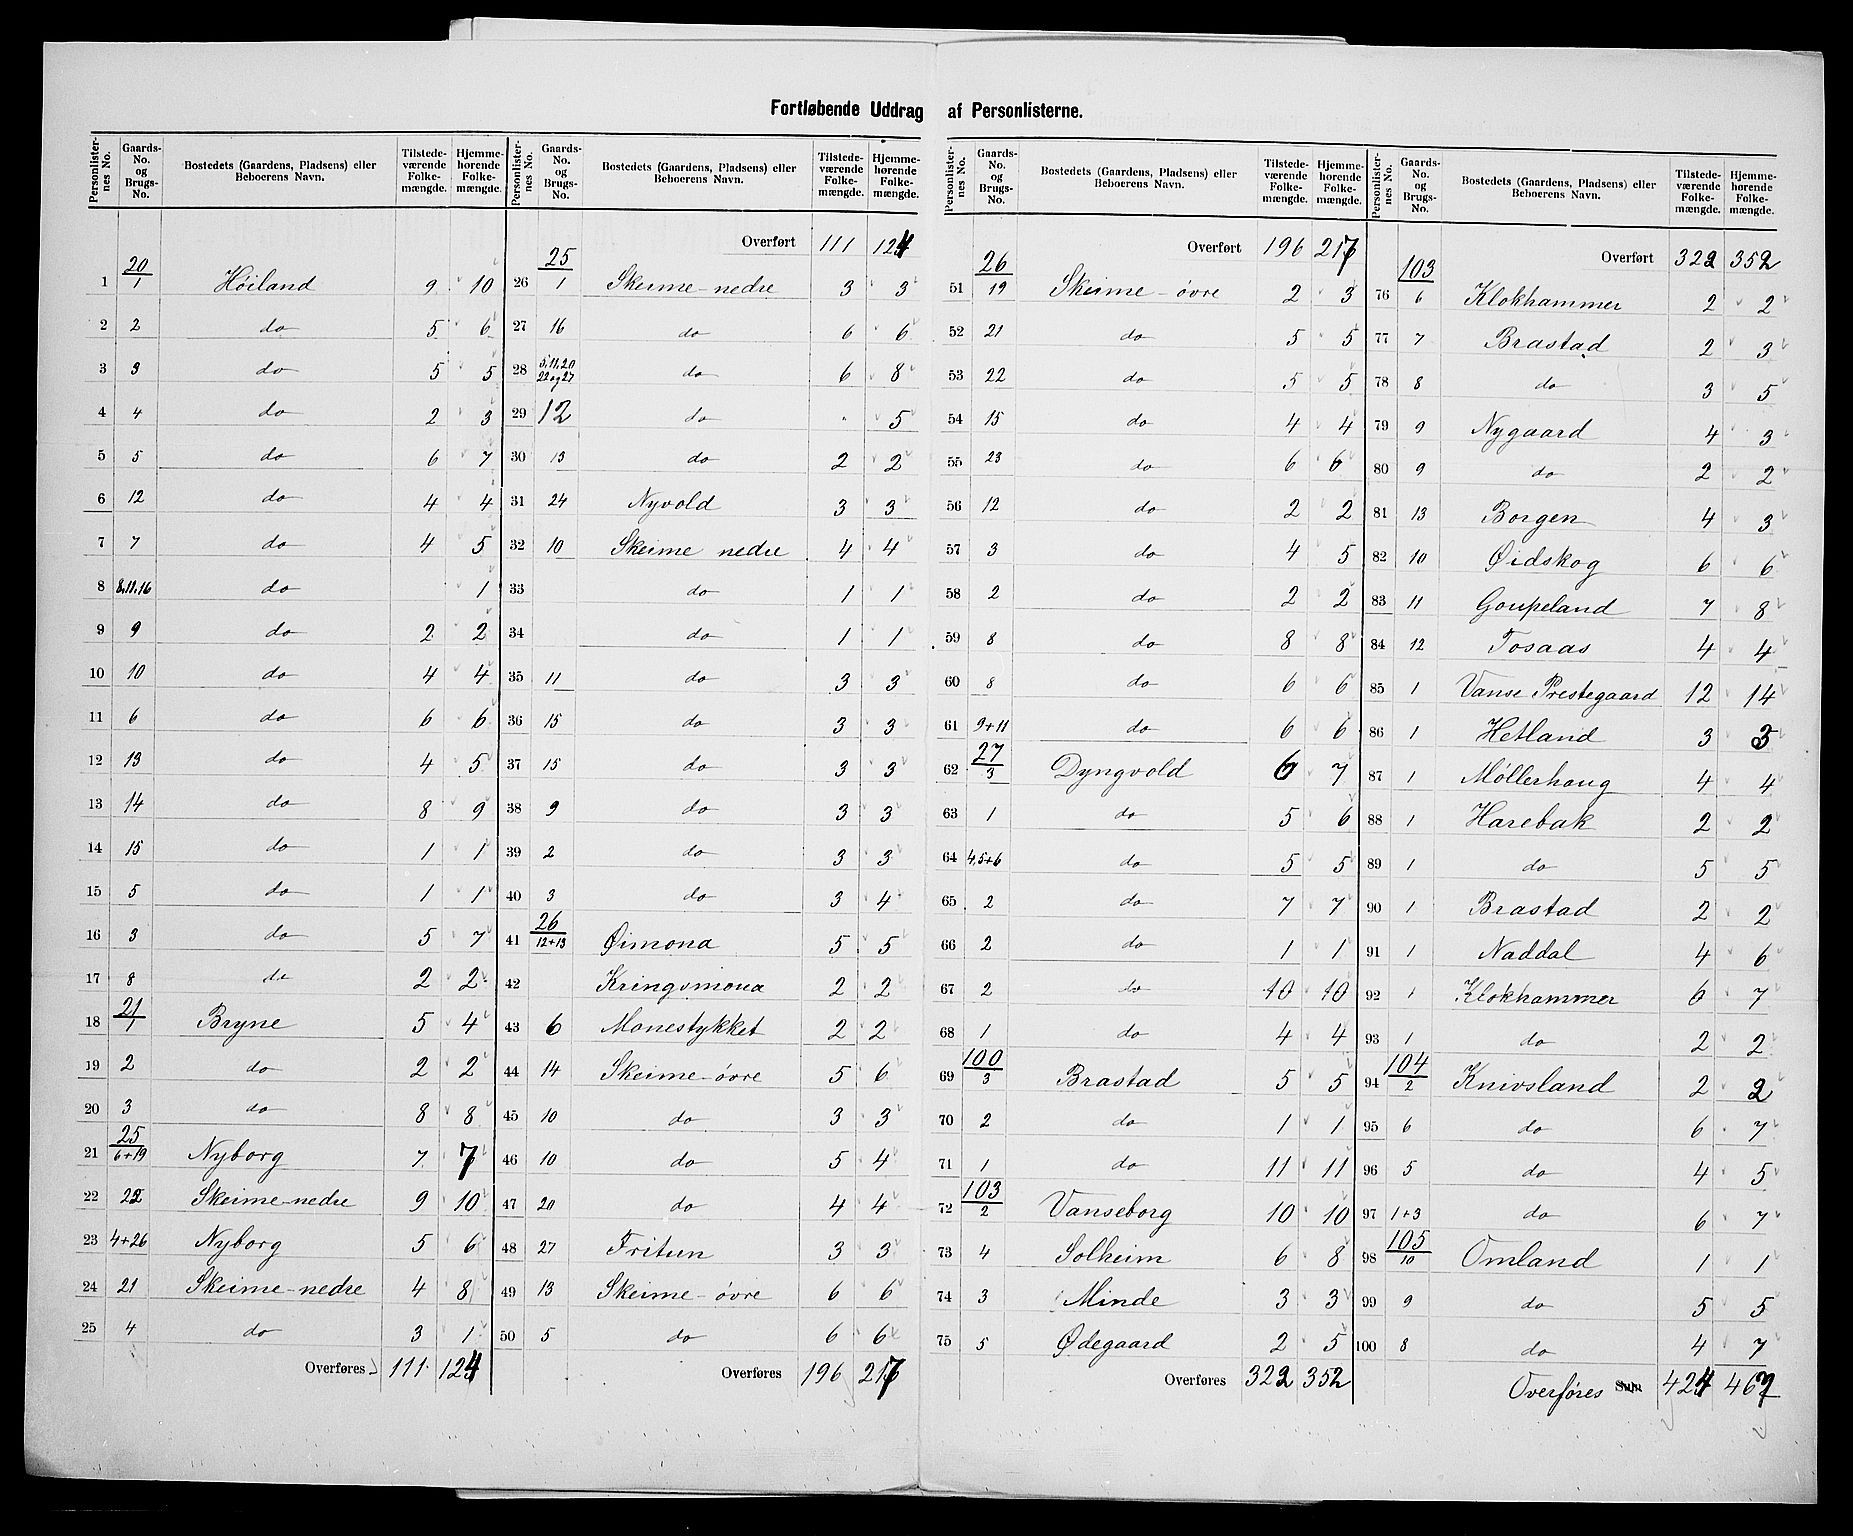 Fortløbende Uddrag af Personlisterne.
Personlister-nes No. | Gaards-No. og Brugs-No. | Bostedets (Gaardens, Pladsens) eller Beboerens Navn. | Tilstede-værende Folke-mængde. | Hjemme-hørende Folke-mængde.
1 20/1 Høiland 9 10
2 2 do 5 6
3 3 do 5 5
4 4 do 2 3
5 5 do 6 7
6 12 do 4 4
7 7 do 4 5
8 8.11.16 do 1
9 9 do 2 2
10 10 do 4 4
11 6 do 6 6
12 13 do 4 5
13 14 do 8 9
14 15 do 1 1
15 5 do 1 1
16 3 do 5 7
17 8 do 2 2
18 21/1 Bryne 5 4
19 2 do 2 2
20 3 do 8 8
21 25/6+19 Nyborg 7 7
22 22 Skeime-nedre 9 10
23 4+26 Nyborg 5 6
24 21 Skeime-nedre 4 8
25 4 do 3 1
Overføres 111 124
Personlister-nes No. | Gaards-No. og Brugs-No. | Bostedets (Gaardens, Pladsens) eller Beboerens Navn. | Tilstede-værende Folke-mængde. | Hjemme-hørende Folke-mængde.
Overført 111 124
26 25/1 Skeime-nedre 3 3
27 16 do 6 6
28 5,11,20 22og27 do 6 8
29 12 do " 5
30 13 do 2 2
31 24 Nyvold 3 3
32 10 Skeime nedre 4 4
33 do 1 1
34 do 1 1
35 11 do 3 3
36 15 do 3 3
37 15 do 3 3
38 9 do 3 3
39 2 do 3 3
40 3 do 3 4
41 26/12+13 Øimona 5 5
42 Kringsmona 2 2
43 6 Monestykket 2 2
44 14 Skeime-øvre 5 6
45 10 do 3 3
46 10 do 5 4
47 20 do 4 4
48 27 Fritun 3 3
49 13 Skeime-øvre 6 6
50 5 do 6 6
Overføres 196 217
Personlister-nes No. | Gaards-No. og Brugs-No. | Bostedets (Gaardens, Pladsens) eller Beboerens Navn. | Tilstede-værende Folke-mængde. | Hjemme-hørende Folke-mængde.
Overført 196 217
51 26/19 Skeime-øvre 2 3
52 21 do 5 5
53 22 do 5 5
54 15 do 4 4
55 23 do 6 6
56 12 do 2 2
57 3 do 4 5
58 2 do 2 2
59 8 do 8 8
60 8 do 6 6
61 9+11 do 6 6
62 27/3 Dyngvold 6 7
63 1 do 5 6
64 4,5+6 do 5 5
65 2 do 7 7
66 2 do 1 1
67 2 do 10 10
68 1 do 4 4
69 100/3 Brastad 5 5
70 2 do 1 1
71 1 do 11 11
72 103/2 Vanseborg 10 10
73 4 Solheim 6 8
74 3 Minde 3 3
75 5 Ødegaard 2 5
Overføres 322 352
Personlister-nes No. | Gaards-No. og Brugs-No. | Bostedets (Gaardens, Pladsens) eller Beboerens Navn. | Tilstede-værende Folke-mængde. | Hjemme-hørende Folke-mængde.
Overført 322 352
76 103/6 Klokhammer 2 2
77 7 Brastad 2 3
78 8 do 3 5
79 9 Nygaard 4 3
80 9 do 2 2
81 13 Borgen 4 3
82 10 Øidskog 6 6
83 11 Goupeland 7 8
84 12 Tosaas 4 4
85 1 Vanse Prestegaard 12 14
86 1 Hetland 3 3
87 1 Møllerhaug 4 4
88 1 Harebak 2 2
89 1 do 5 5
90 1 Brastad 2 2
91 1 Naddal 4 6
92 1 Klokhammer 6 7
93 1 do 2 2
94 104/2 Knivsland 2 2
95 6 do 6 7
96 5 do 4 5
97 1+3 do 6 7
98 105/10 Omland 1 1
99 9 do 5 5
100 8 do 4 7
Overføres Sum 424 462